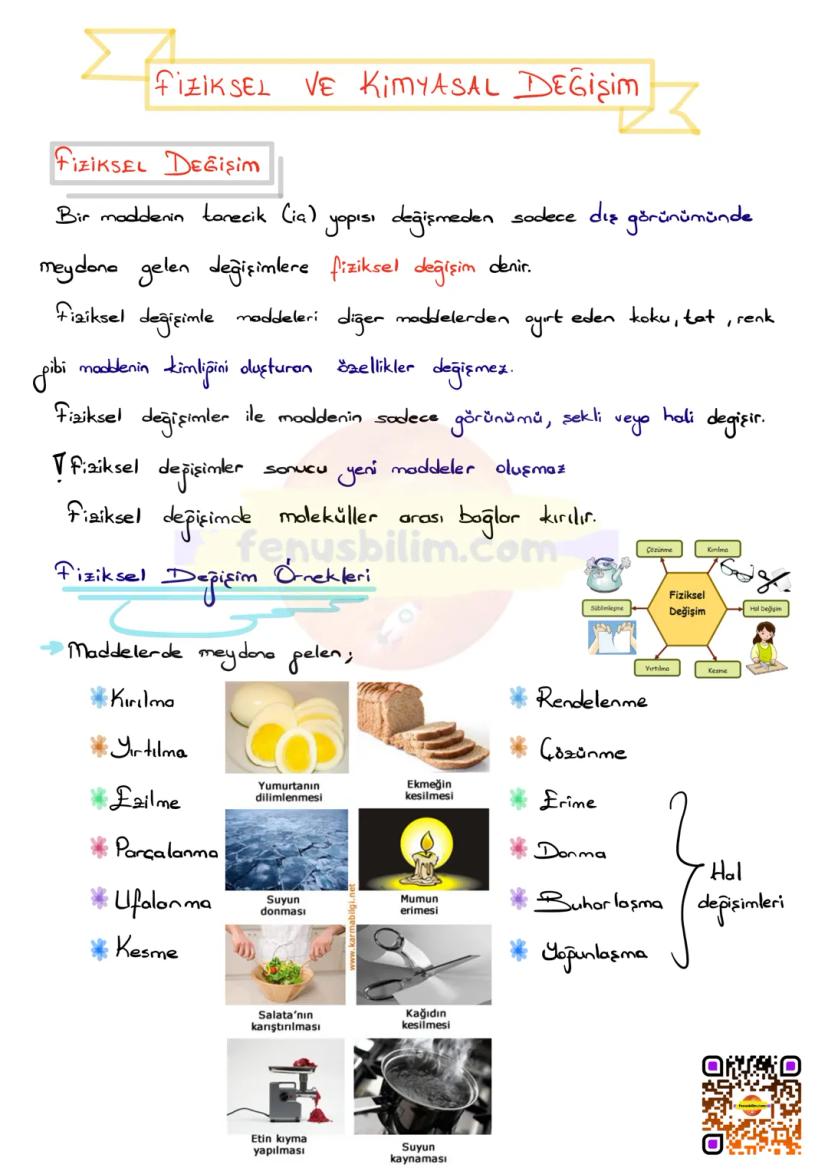 FİZİKSEL VE KİMYASAL DEĞİŞİM
FİZİKSEL DEĞİŞİM
Bir maddenin tanecik (iç) yapısı değişmeden sadece dış görünümünde
meydana gelen değişimlere fiziksel değişim denir.
Fiziksel değişimle maddeleri diğer maddelerden ayırt eden koku, tat, renk
gibi maddenin kimliğini oluşturan özellikler değişmez.
Fiziksel değişimler ile maddenin sadece görünümü, şekli veya hali değişir.
! Fiziksel değişimler sonucu yeni maddeler oluşmaz
Fiziksel değişimde moleküller arası bağlar kırılır.
fenusbilim.com
Fiziksel Değişim Örnekleri
Çözünme
Kırılma
Süblimleşme
Fiziksel
Değişim
Hal Değişim
Yırtılma
Kesme
Maddelerde meydana gelen;
Kırılma
Yırtılma
Ezilme
Parçalanma
Ufalanma
Kesme
Yumurtanın
dilimlenmesi
Ekmeğin
kesilmesi
Suyun
donması
Mumun
erimesi
www.karmabilgi.net
Salata'nın
karıştırılması
Kağıdın
kesilmesi
Etin kıyma
yapılması
Suyun
kaynaması
Rendelenme
Çözünme
Erime
Donma
Buharlaşma
Yoğunlaşma
Hal
değişimleri
fenusbilim.com